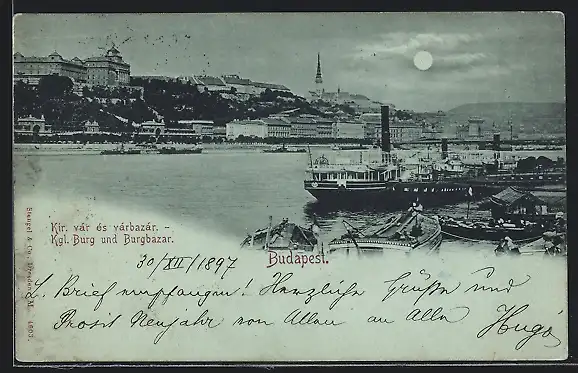 Kir. vár és várbazár. -
Kgl. Burg und Burgbazar.
Budapest.
Stengel & Co., Dresden M. 1603.
30/XII/1897
L. Brief empfangen! Herzliche Grüße und
Prosit Neujahr von Allen an Alle Hugo